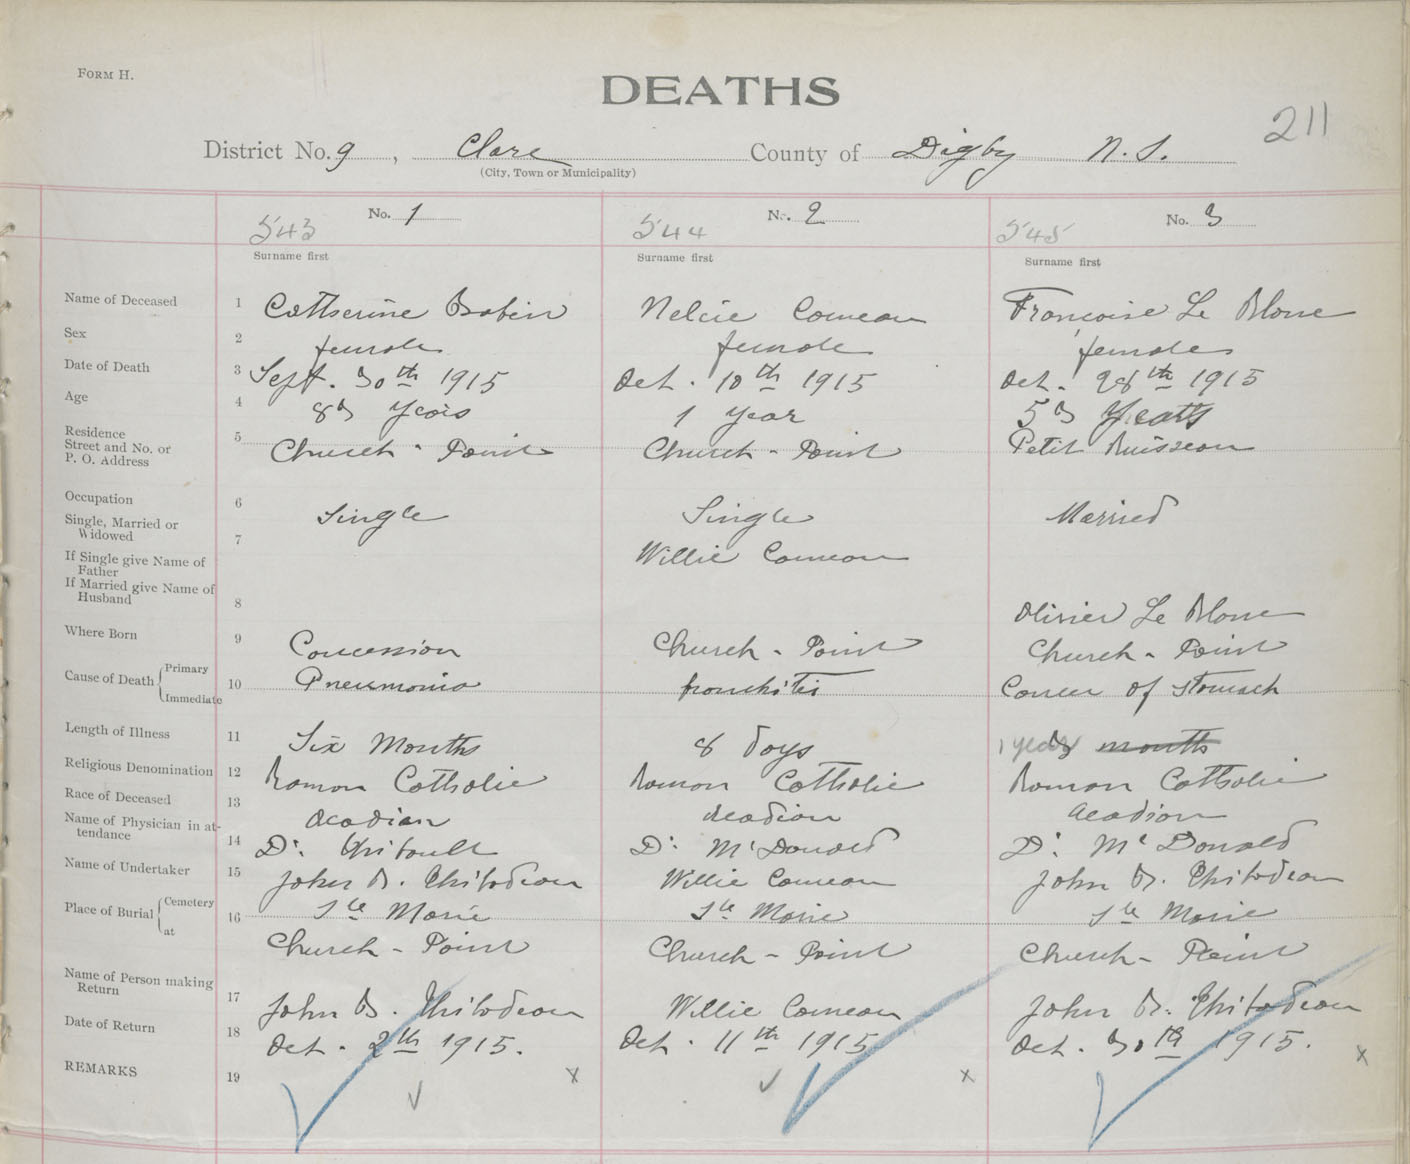 FORM H.
DEATHS
211
District No. 9, Clare County of Digby N.S.
(City, Town or Municipality)
543 No. 1 544 No. 2 545 No. 3
Surname first Surname first Surname first
Name of Deceased 1 Catherine Babin Nelcie Comeau Francoise Le Blanc
Sex 2 female female female
Date of Death 3 Sept. 30th 1915 Oct. 10th 1915 Oct. 28th 1915
Age 4 83 years 1 year 53 years
Residence
Street and No. or
P. O. Address 5 Church-Point Church-Point Petit Ruisseau
Occupation 6
Single, Married or
Widowed 7 Single Single Married
If Single give Name of
Father Willie Comeau
If Married give Name of
Husband 8 Olivier Le Blanc
Where Born 9 Concession Church-Point Church-Point
Cause of Death { Primary
Immediate 10 Pneumonia bronchitis Cancer of stomach
Length of Illness 11 Six Months 8 days 1 year months
Religious Denomination 12 Roman Catholic Roman Catholic Roman Catholic
Race of Deceased 13 Acadian Acadian Acadian
Name of Physician in at-
tendance 14 Dr. Thibault Dr. McDonald Dr. McDonald
Name of Undertaker 15 John B. Thibodeau Willie Comeau John B. Thibodeau
Place of Burial { Cemetery
at 16 Ste Marie Ste Marie Ste Marie
Church-Point Church-Point Church-Point
Name of Person making
Return 17 John B. Thibodeau Willie Comeau John B. Thibodeau
Date of Return 18 Oct. 2th 1915. Oct. 11th 1915 Oct. 30th 1915.
REMARKS 19 x x x